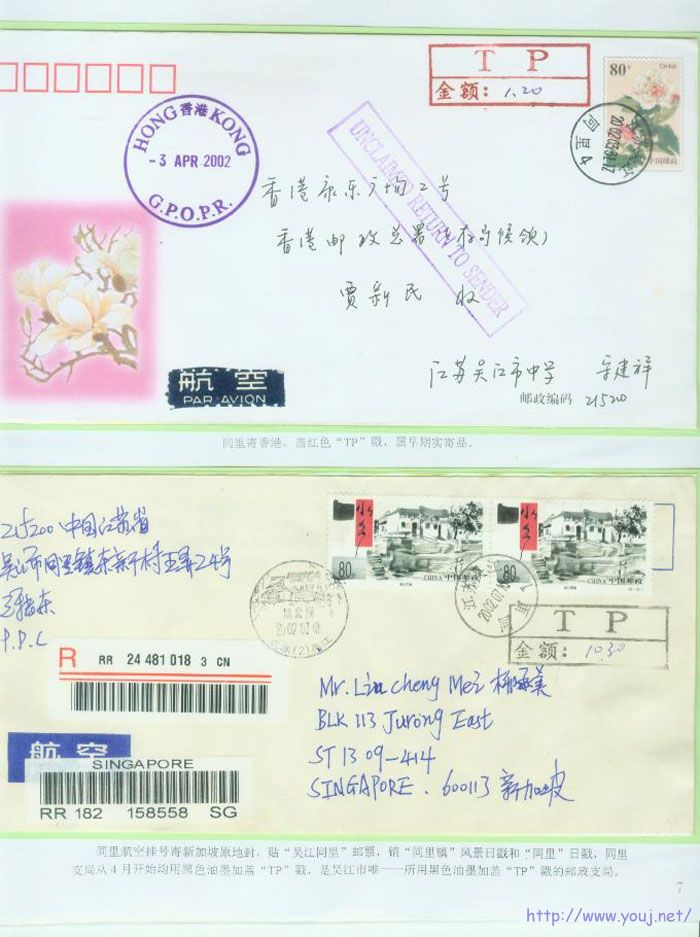 T P
金额: 1.20
80分
CHINA
中国邮政
HONG 香港 KONG
-3 APR 2002
G.P.O.P.R.
同里
UNCLAIMED RETURN TO SENDER
香港康乐广场2号
香港邮政总署(存局候领)
贾新民 收
航空
PAR AVION
江苏吴江市中学
邮政编码 215200
同里寄香港，盖红色“TP”戳，属早期实寄品。
215200 中国江苏省
水乡
80分
CHINA 中国邮政
水乡
80分
CHINA 中国邮政
同里
T P
金额: 10.30
R
RR 24 481 018 3 CN
Mr. Liu Cheng Mei
BLK 113 Jurong East
ST 13 09-414
SINGAPORE . 600113 新加坡
航空
SINGAPORE
RR 182 158558 SG
同里航空挂号寄新加坡原地封，贴“吴江同里”邮票，销“同里镇”风景日戳和“同里”日戳，同里
支局从4月开始均用黑色油墨加盖“TP”戳，是吴江市唯一一所用黑色油墨加盖“TP”戳的邮政支局。
7
http://www.youj.net/